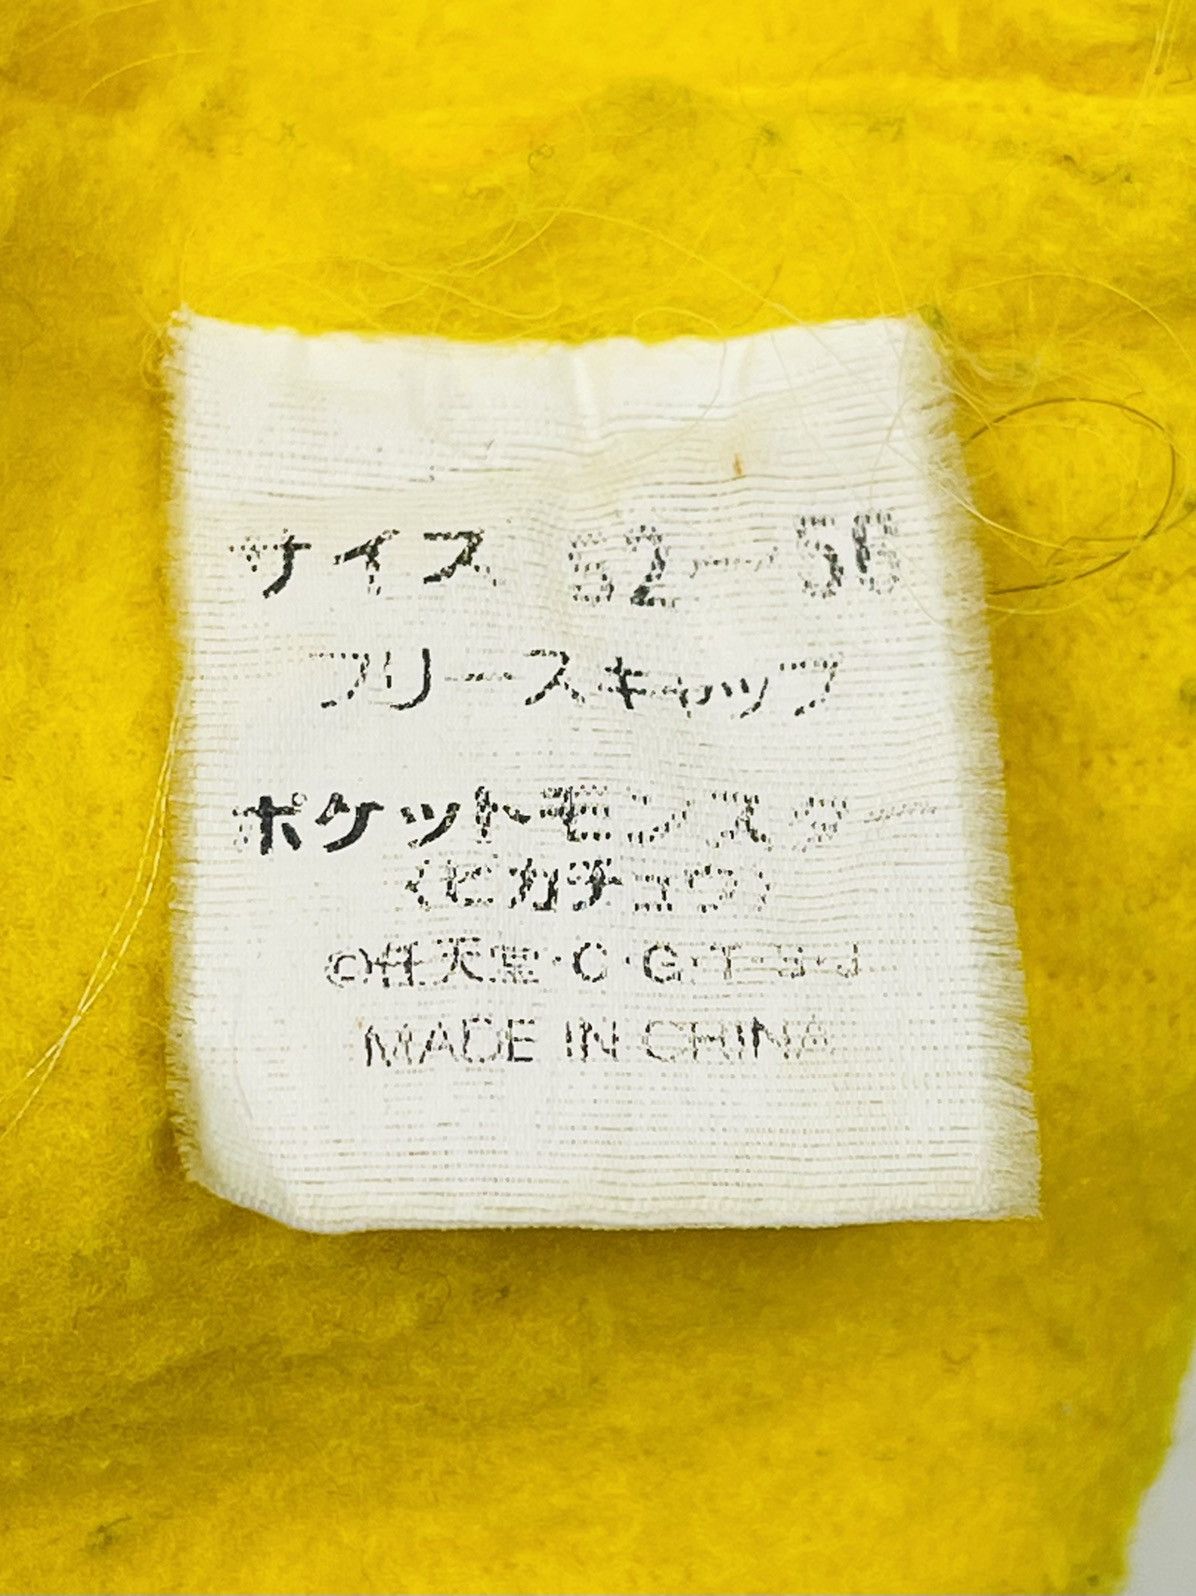 サイズ 52〜
フリースキャップ
ポケットモンスター
〈ピカチュウ〉
©任天堂·C·G·T·S·J
MADE IN CHINA